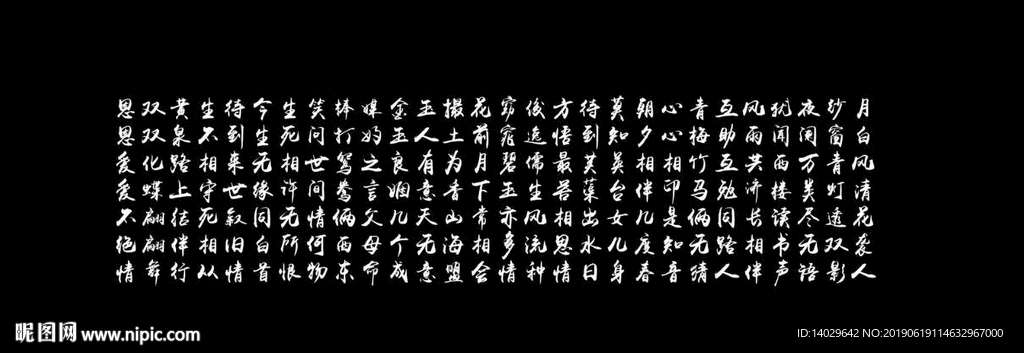 月白风清花袭人
纱窗青灯透双影
夜阑万类尽无语
犹闻西楼读书声
风雨共济长相伴
互助互勉同路人
青梅竹马俩无猜
心心相印是知音
朝夕相伴几度春
莫知英台女儿身
待到芙蕖出水日
方悟最苦相思情
俊逸儒生风流种
窈窕碧玉亦多情
花前月下常相会
撮土为香山海盟
玉人有意天无意
金玉良姻几个成
媒妁之言父母命
棒打鸳鸯俩西东
笑问世间情何物
生死相许无所恨
今生无缘同白首
待到来世叙旧情
生不相守死相从
黄泉路上结伴行
双双化蝶翩翩舞
恩恩爱爱不绝情
昵图网 www.nipic.com
ID:14029642 NO:20190619114632967000